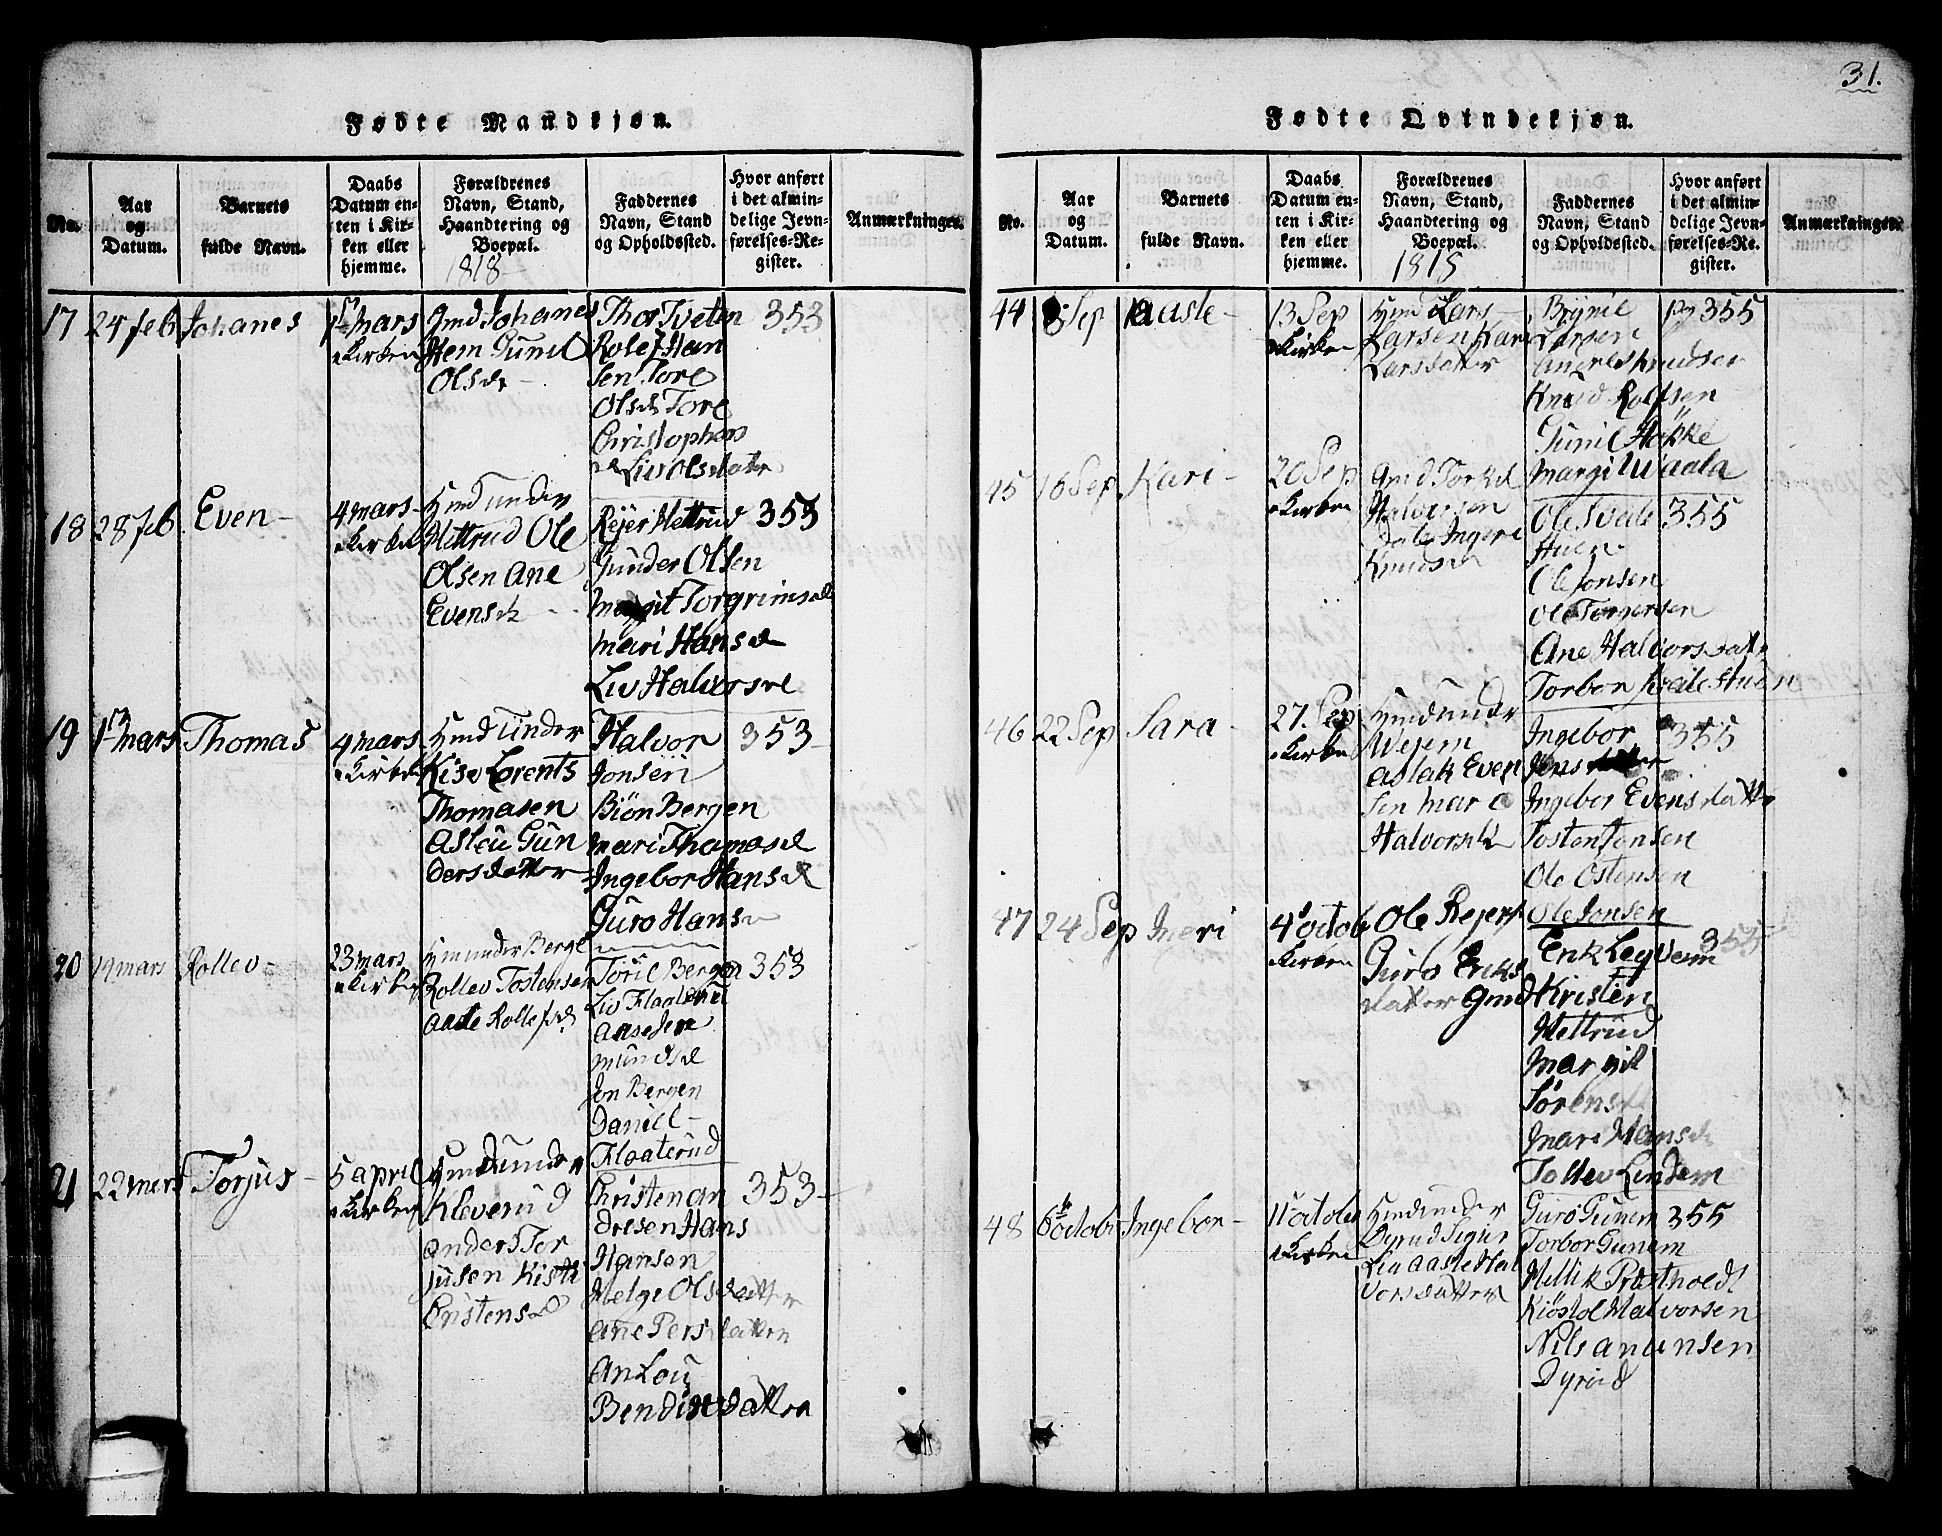 31.
Fødte Mandkjøn.
No.
Aar
og
Datum.
Barnets
fulde Navn.
Daabs
Datum en-
ten i Kir-
ken eller
hjemme.
Forældrenes
Navn, Stand,
Haandtering og
Boepæl.
1818
Faddernes
Navn, Stand
og Opholdssted.
Hvor anført
i det almin-
delige Jevn-
førelses-Re-
gister.
Anmærkninger.
17
24 feb
Johanes
1 mars
kirken
Gmd Johanes
Hem Gunil
Olsd
Thor Tveten
Rolef Han
sen Tore
Olsd Tore
Christophers
d Liv Olsdater
353
18
28 feb
Even
4 mars
kirken
Hmd under
Hettrud Ole
Olsen Ane
Evensd
Rejer Hettrud
Gunder Olsen
Margit Torgrimsd
mari Hansd
Liv Halvorsd
353
19
1 mars
Thomas
4 mars
kirken
Hmd under
Kise Lorents
Thomasen
Asleu Gun
dersdatter
Halvor
Jonsen
Biön Bergen
mari Thomasd
Ingebor Hansd
Guro Hans
353
20
14 mars
Rollev
23 mars
kirken
Hm under Berge
Rollev Tostensen
Aaste Rollefsd
Toril Bergen
Liv Flaaterud
Aase
mundsd
Jon Bergen
Daniel
Flaaterud
353
21
22 mars
Torjus
5 april
kirken
Hmd under
Kleverud
anders Tor
jusen Kisti
Kristensd
Christen an
dresen Hans
Hansen
Helge Olsdatter
Ane Persdatter
An Lou
Benditsdatter
353
Fødte Qvindekjøn.
No.
Aar
og
Datum.
Barnets
fulde Navn.
Daabs
Datum en-
ten i Kir-
ken eller
hjemme.
Forældrenes
Navn, Stand,
Haandtering og
Boepæl.
1818
Faddernes
Navn, Stand
og Opholdssted.
Hvor anført
i det almin-
delige Jevn-
førelses-Re-
gister.
Anmærkninger.
44
8 Sep
Aasle
13 Sep
kirken
Hmd Lars
Larsen Kari
Larsdatter
Brynil
Larsen
Andres Knudsen
Knud Rolfsen
Gunil Hökke
Margit Waala
355
45
16 Sep
Kari
20 Sep
kirken
Gmd Torkel
Halvorsen
Dale Ingeri
Knudsd
Ole Svale
Huen
Ole Jonsen
Ole Torgersen
Ane Halvorsdatr
Torbor Svale Huen
355
46
22 Sep
Sara
27. Sep
kirken
Hmd under
Wejem
Aslak Even
sen mari
Halvorsd
Ingebor
Jensdatter
Ingebor Evensdatter
Tosten Jonsen
Ole Ostensen
Ole Jonsen
355
47
24 Sep
Ingri
4 octob
kirken
Ole Rejers
Guro Eriks
datter Gmd
Erik Leg Veum
Kristen
Hettrud
Margit
Sörensd
mari Hansd
Tollev Lindem
355
48
6 octobr
Ingebor
11 octobr
kirken
Hmd under
Dyrud Sigur
Liu Aaste Hal
vorsdatter
Guro Gunem
Torbor Gunem
Mellik Præsthoedt
Kiöstol Halvorsen
Nils Amunsen
Dyrud
355